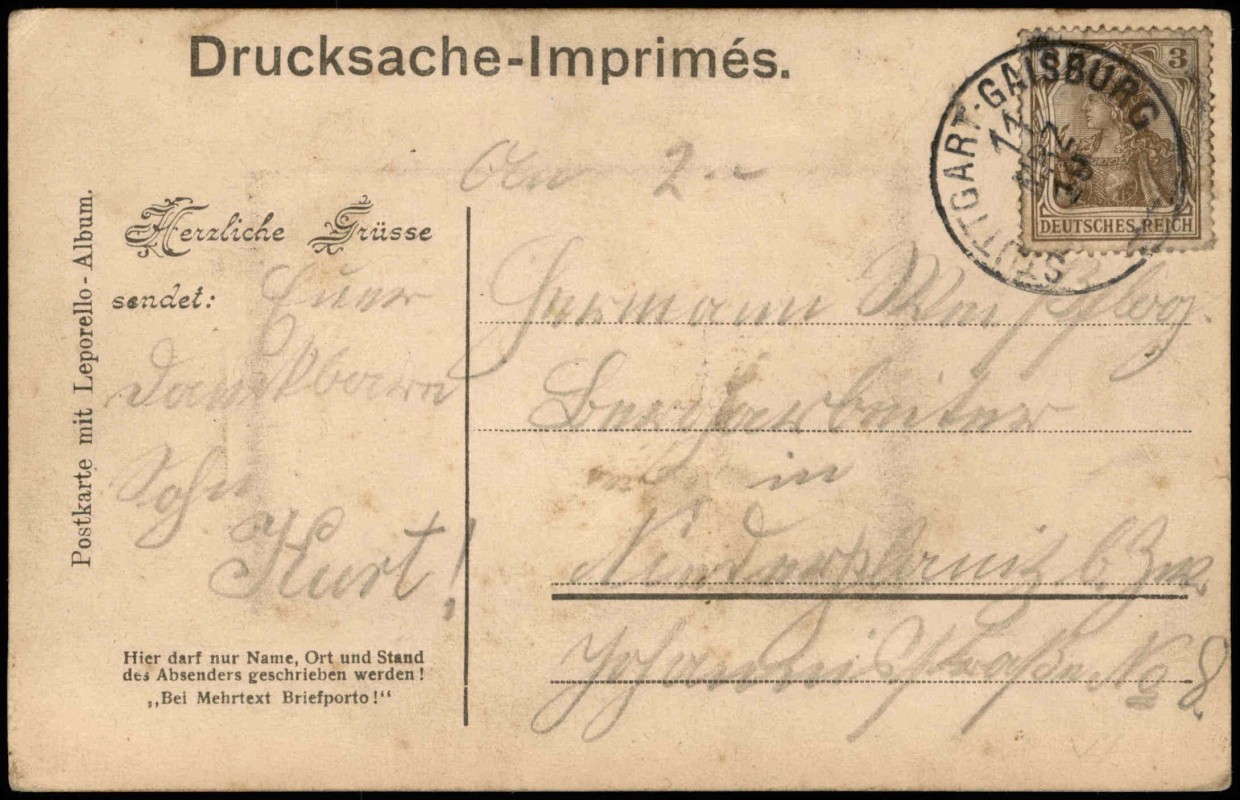 Drucksache-Imprimés.
3
STUTTGART-GAISBURG
11
DEUTSCHES REICH
An 2
Postkarte mit Leporello-Album.
Herzliche Grüsse
sendet: Euer
Dankbarer
Sohn
Kurt!
Hier darf nur Name, Ort und Stand
des Absenders geschrieben werden!
„Bei Mehrtext Briefporto!“
Hermann
Bergarbeiter
in
Niederplanitz b. Zw.
Johannisstraße No 8.